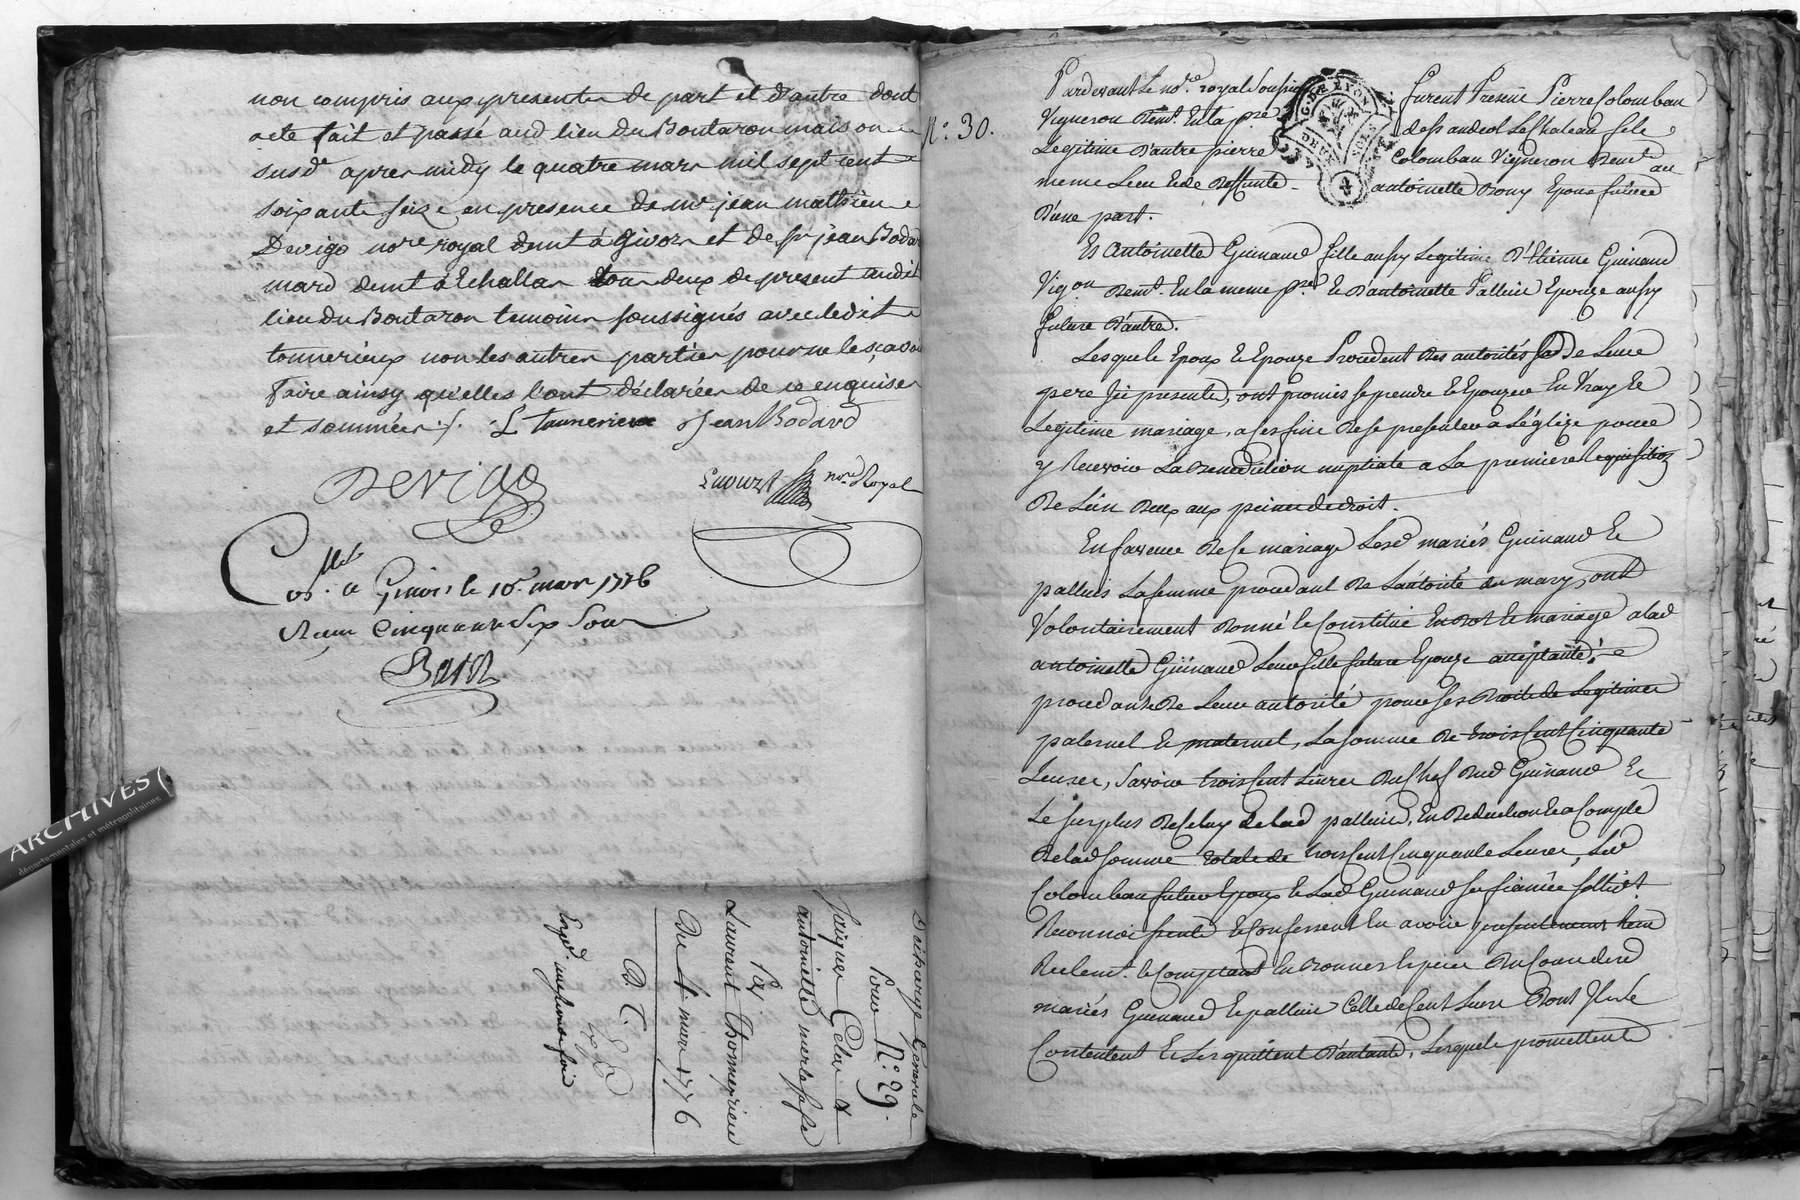 non compris aux presentes de part et d'autre dont
acte fait et passé aud lieu du Boutaron maison
susd^e apres midy le quatre mars mil sept cent
soixante seize en presence de m^e jean mathieu
Devigo no^re royal demt à Givors et de s^r jean Bodard
mard demt à Echallas tous deux de present audit
lieu du Boutaron temoins soussignés avec ledit
tonnerieux non les autres parties pour ne le sçavoir
faire ainsy qu'elles l'ont déclarées de ce enquises
et sommées ./. L tonnerieux Jean Bodard
Devigo
no^re Royal
a Givors le 10 mars 1776
Recu Cinquante six sous
Décharge Generale
pour N.° 29.
antoinette
Par
Laurent thomerieu
Du 4 mars 1776
D. C.
Exp^d.
N.° 30.
Pardevant le no^re royal soussigné furent Presens Pierre Colomban
Vigneron Demt. En la p^sse de st andeol le Chateau fils
Legitime d'autre pierre Colomban Vigneron Demt. au
meme Lieu et de deffunte antoinette Epoux future
D'une part.
Et Antoinette Guinand fille aussy Legitime D'Etienne Guinand
Vig^on Demt. En la meme p^sse et d'antoinette Palluis Epouze aussy
future D'autre.
Lesquels Epoux et Epouze Procedent des autorités de Leurs
pere ici presents, ont promis se prendre et Epouzer En Vray et
Legitime mariage, a ces fins de se presenter a L'églize pour
y Recevoir La Benediction nuptiale a La premiere Requisition
de L'un deux aux peines de droit.
En faveur de ce mariage Lesd mariés Guinand et
palluis La femme procedant de L'autorité du mary, ont
Volontairement donné et Constitué En dot et mariage a lad
antoinette Guinand Leur fille future Epouze acceptante
procedante de Leur autorité pour ses droits de Legitimes
paternel et maternel, La somme de trois Cent Cinquante
Livres, Savoir trois Cent Livres du Chef dud Guinand et
Le surplus de Celuy de lad palluis, En deduction et a Compte
de lad somme totale de trois Cent Cinquante Livres, Led
Colomban futur Epoux et Lad Guinand sa fiancée sollid^t
Reconnoissent et Confessent En avoir presentement
Réelemt. et Comptant En bonnes Especes
mariés Guinand et palluis Celle de Cent Livres Dont Ils se
Contentent et Les quittent D'autant, Lesquels promettent